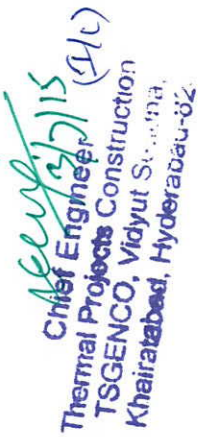 3/7/15
Chief Engineer (I/c)
Thermal Projects Construction
TSGENCO, Vidyut
Khairatabad, Hyderabad-82.